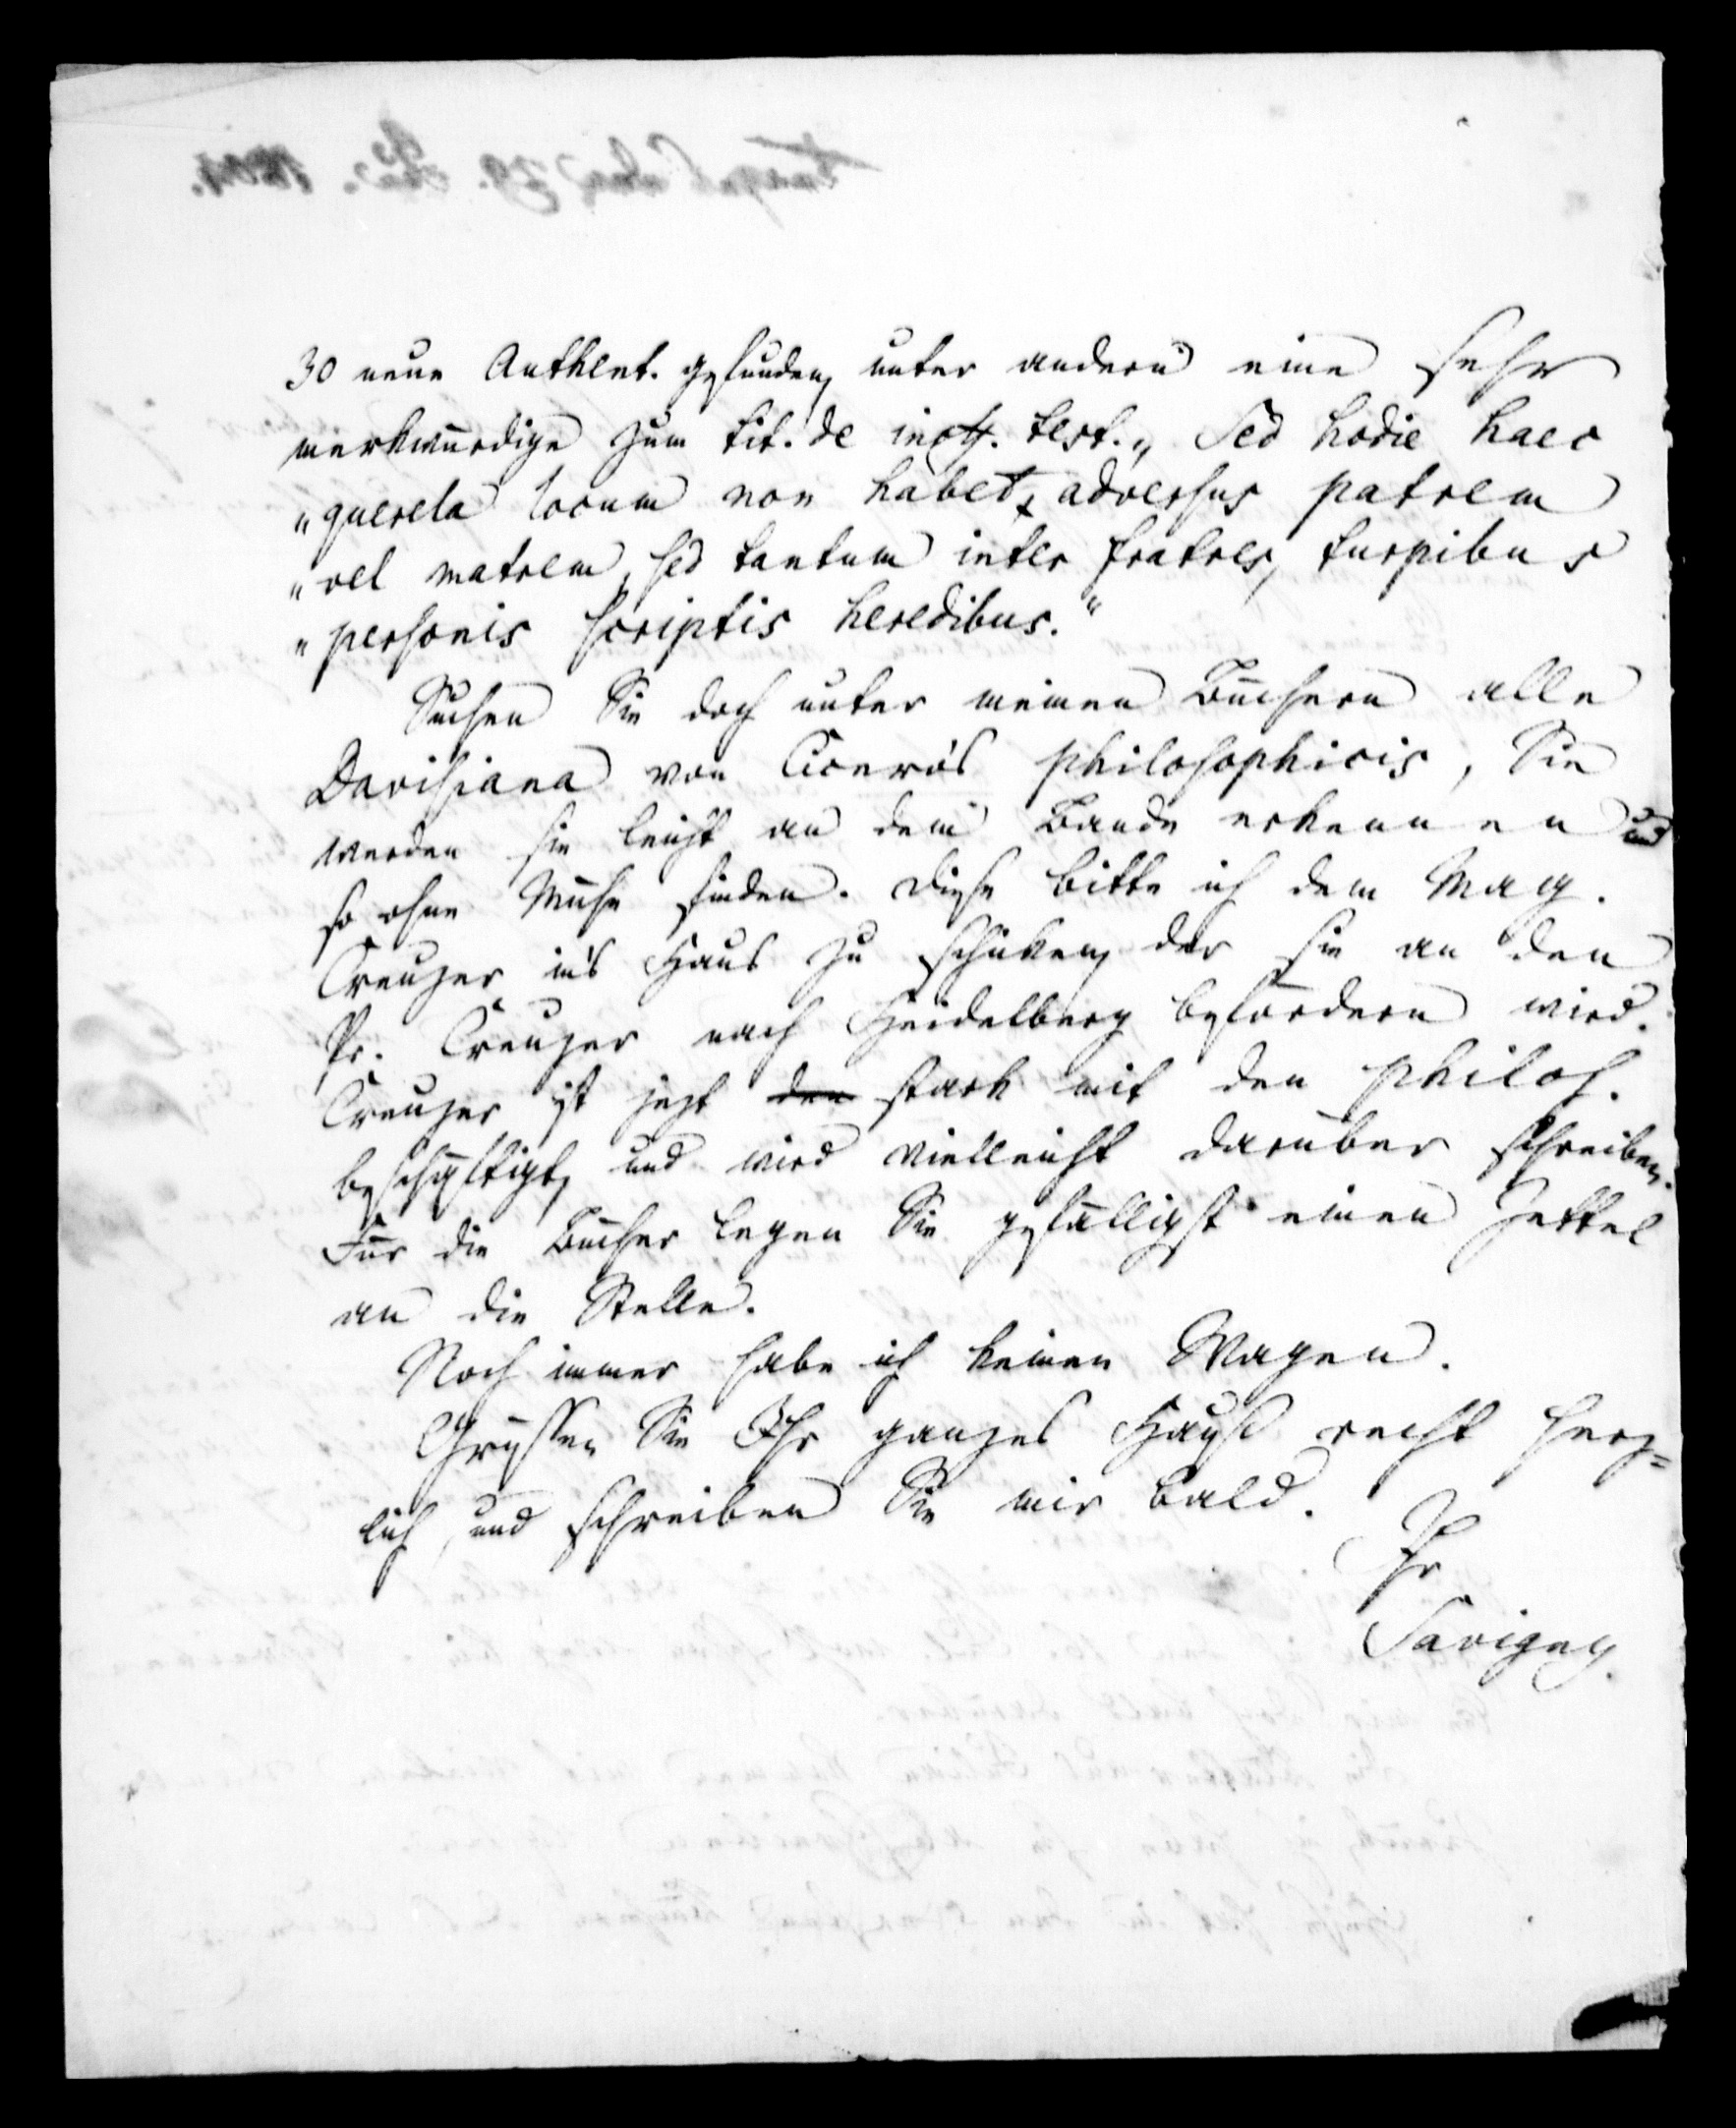 30 neue Authent. gefunden, unter andern eine sehr
merkwürdige zum tit. de inoff. test. „Sed hodie haec
„querela locum non habet adversus patrem
„vel matrem, sed tantum inter fratres, turpibus
„personis scriptis heredibus.“
Suchen Sie doch unter meinen Büchern alle
Davisiana von Cicero's philosophicis, Sie
werden sie leicht an dem Bande erkennen und
so ohne Mühe finden. Diese bitte ich dem Mag.
Creuzer ins Haus zu schicken, der sie an den
Pr. Creuzer nach Heidelberg befördern wird.
Creuzer ist jezt den stark mit den philos.
beschäftigt, und wird vielleicht darüber schreiben.
Für die Bücher legen Sie gefälligst einen Zettel
an die Stelle.
Noch immer habe ich keinen Wagen.
Grüssen Sie Ihr ganzes Haus recht herz=
lich, und schreiben Sie mir bald.
Ihr
Savigny.